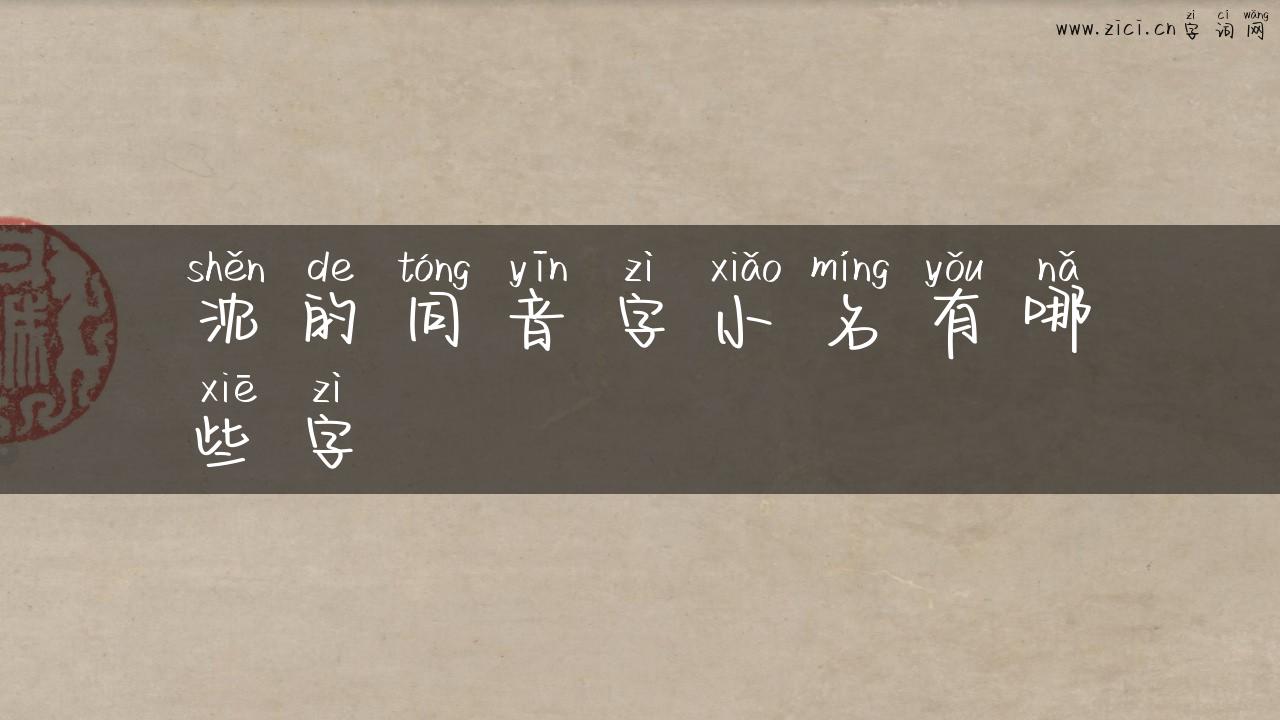 zì cí wǎng
www.zici.cn 字词网
shěn de tóng yīn zì xiǎo míng yǒu nǎ
沈的同音字小名有哪
xiē zì
些字